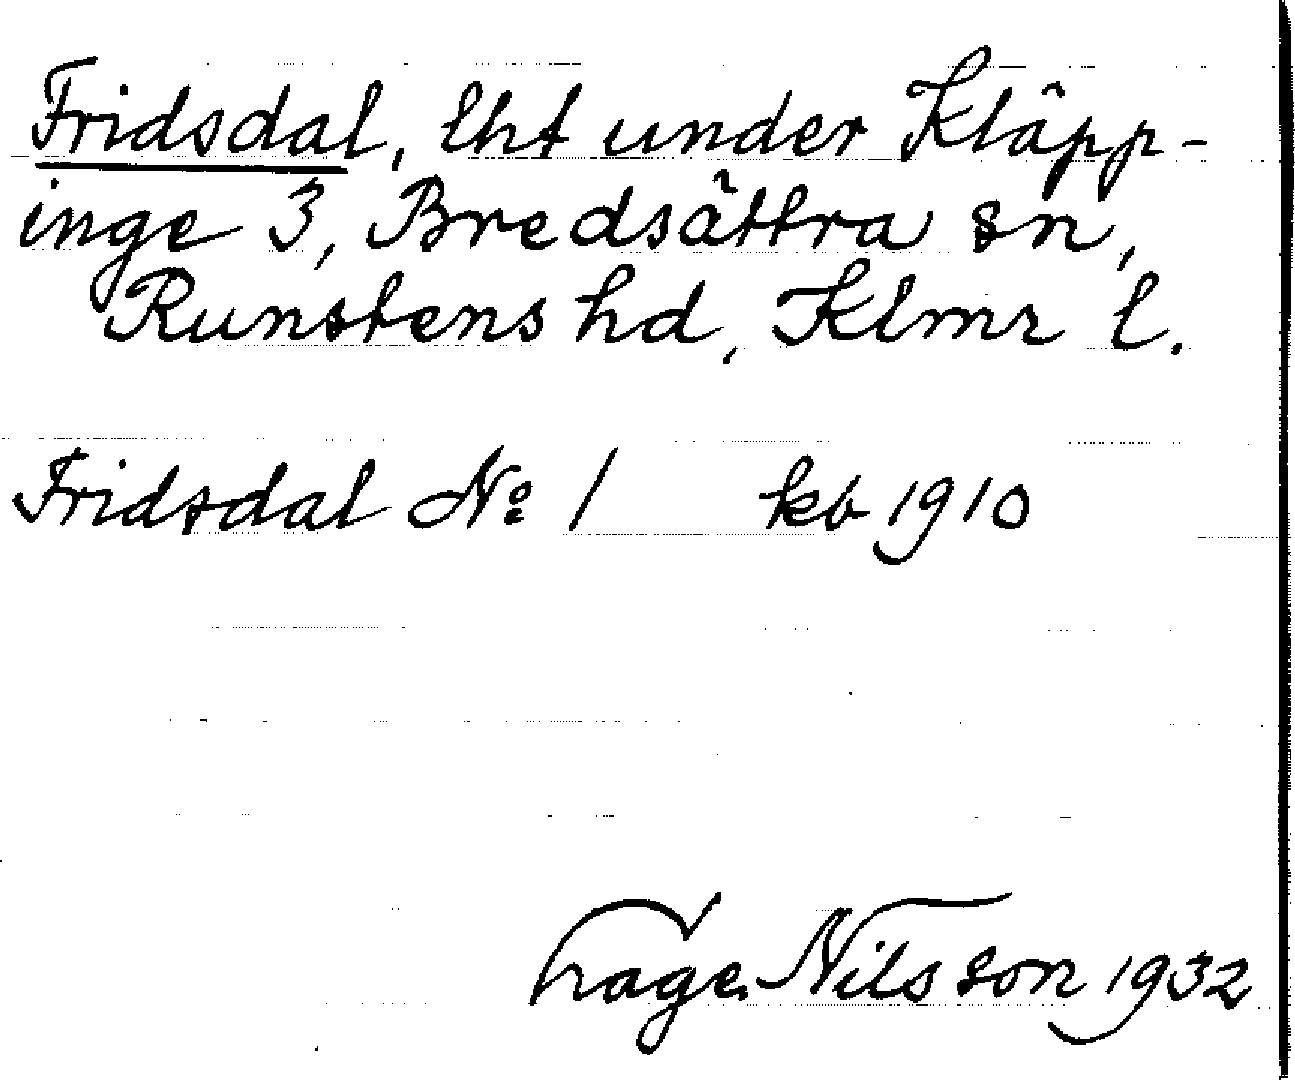 Fridsdal, lht under Kläpp-
inge 3, Bredsättra sn,
Runstens hd, Klmr l.
Fridsdal No 1 kb 1910
Hage Nilsson 1932